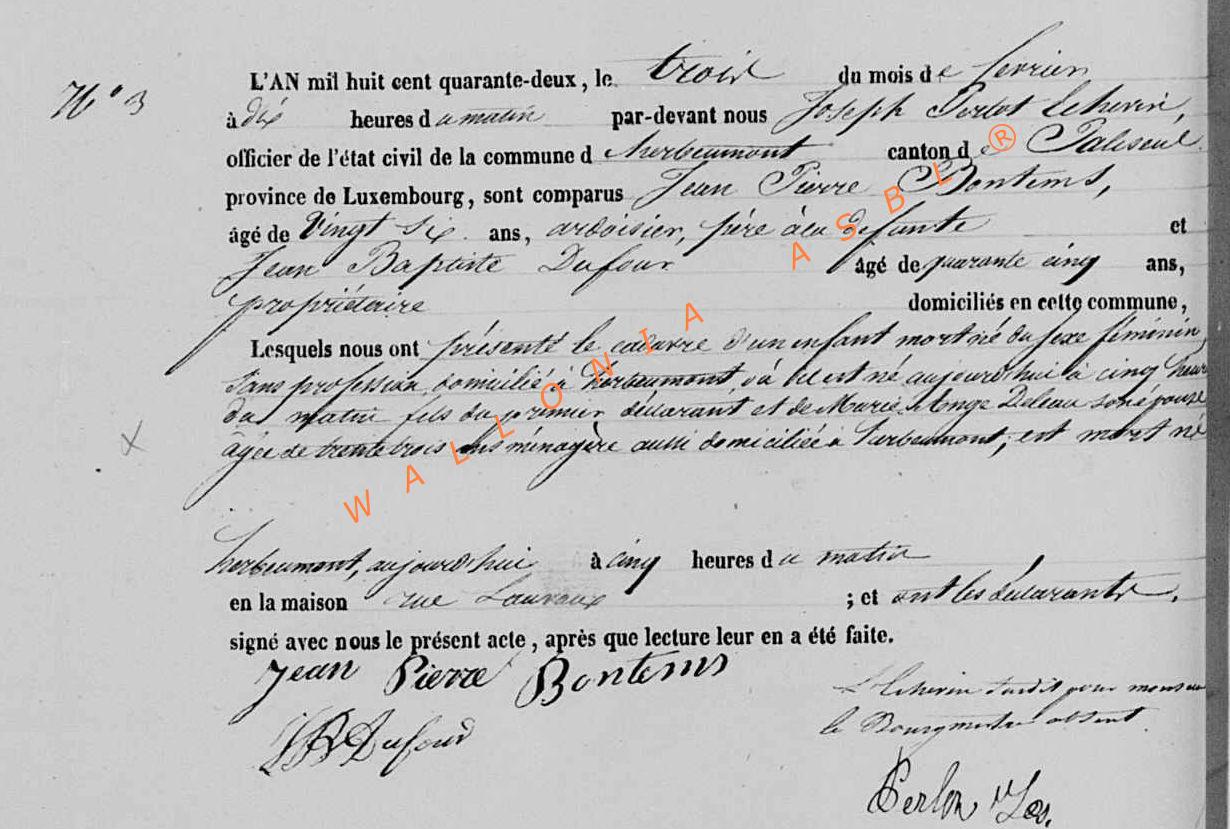 N° 3
L'AN mil huit cent quarante-deux, le trois du mois de fevrier
à dix heures du matin par-devant nous Joseph Perlot Echevin,
officier de l'état civil de la commune d'herbeumont canton de Paliseul
province de Luxembourg, sont comparus Jean Pierre Bontems,
âgé de Vingt six ans, ardoisier, père à la défunte et
Jean Baptiste Dufour âgé de quarante cinq ans,
propriétaire domiciliés en cette commune,
Lesquels nous ont présenté le cadavre d'un enfant mort né du sexe féminin
sans profession, domicilié à herbeumont, où il est né aujourd'hui à cinq heures
du matin fils du premier déclarant et de Marie Ange Deleau son épouse
agée de trente trois ans ménagère aussi domiciliée à herbeumont, est mort né
herbeumont, aujourd'hui à cinq heures du matin
en la maison rue ; et ont les déclarants,
signé avec nous le présent acte, après que lecture leur en a été faite.
Jean Pierre Bontems
JB Dufour
L'Echevin susdit pour monsieur
le Bourgmestre absent
Perlot Jos.
WALLONIA ASBL ®